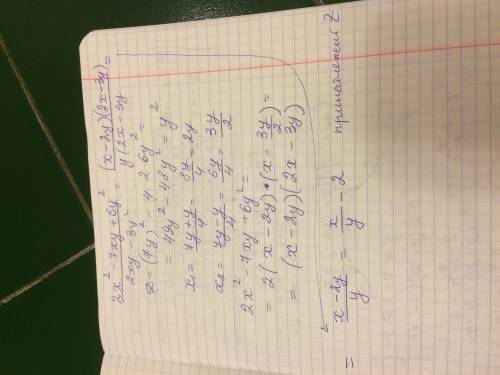 (2x² - 7xy + 6y²)/(2xy - 3y²) = ((x - 2y)(2x - 3y))/(y(2x - 3y) =
D = (7y)² - 4 · 2 · 6y² =
= 49y² - 48y² = y²
x₁ = (7y + y)/4 = 8y/4 = 2y
x₂ = (7y - y)/4 = 6y/4 = 3y/2
2x² - 7xy + 6y² =
= 2(x - 2y) · (x - 3y/2) =
= (x - 2y)(2x - 3y)
= (x - 2y)/y = x/y - 2 принадлежит Z